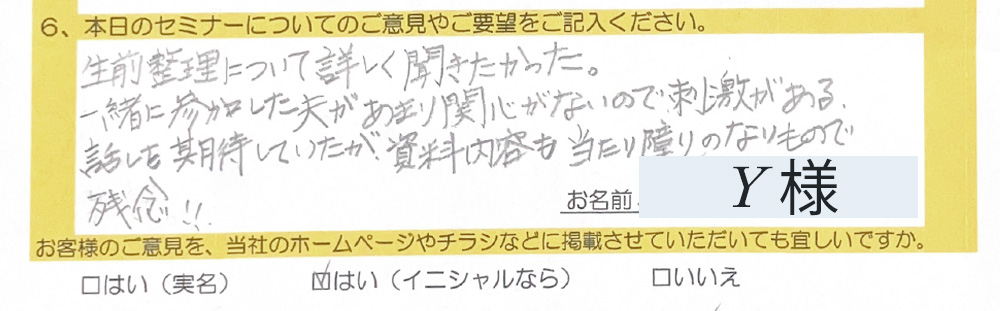 6、本日のセミナーについてのご意見やご要望をご記入ください。
生前整理について詳しく聞きたかった。
一緒に参加した夫があまり関心がないので刺激がある、
話しを期待していたが、資料内容も当たり障りのなりもので
残念!!
お名前 Y様
お客様のご意見を、当社のホームページやチラシなどに掲載させていただいても宜しいですか。
□はい（実名） ☑はい（イニシャルなら） □いいえ